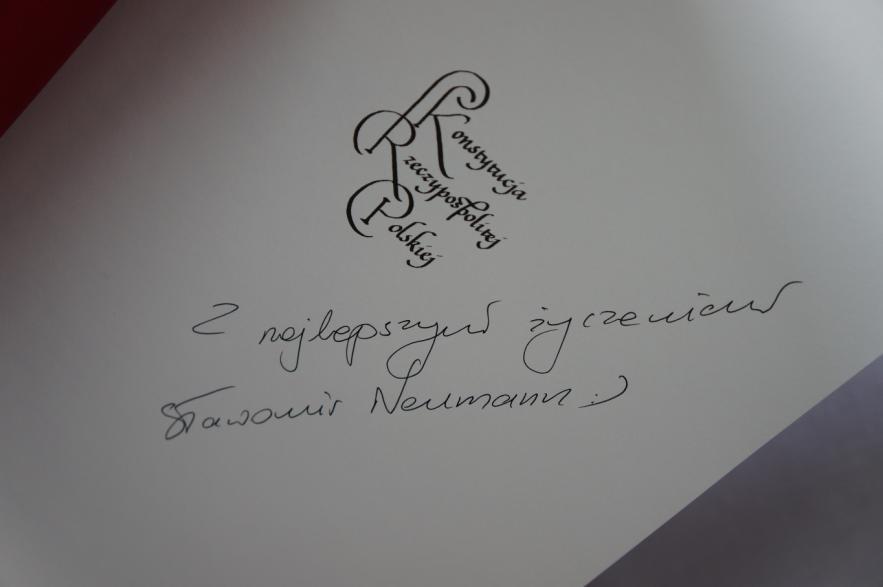 Konstytucja
Rzeczypospolitej
Polskiej
Z najlepszymi życzeniami
Sławomir Neumann :)